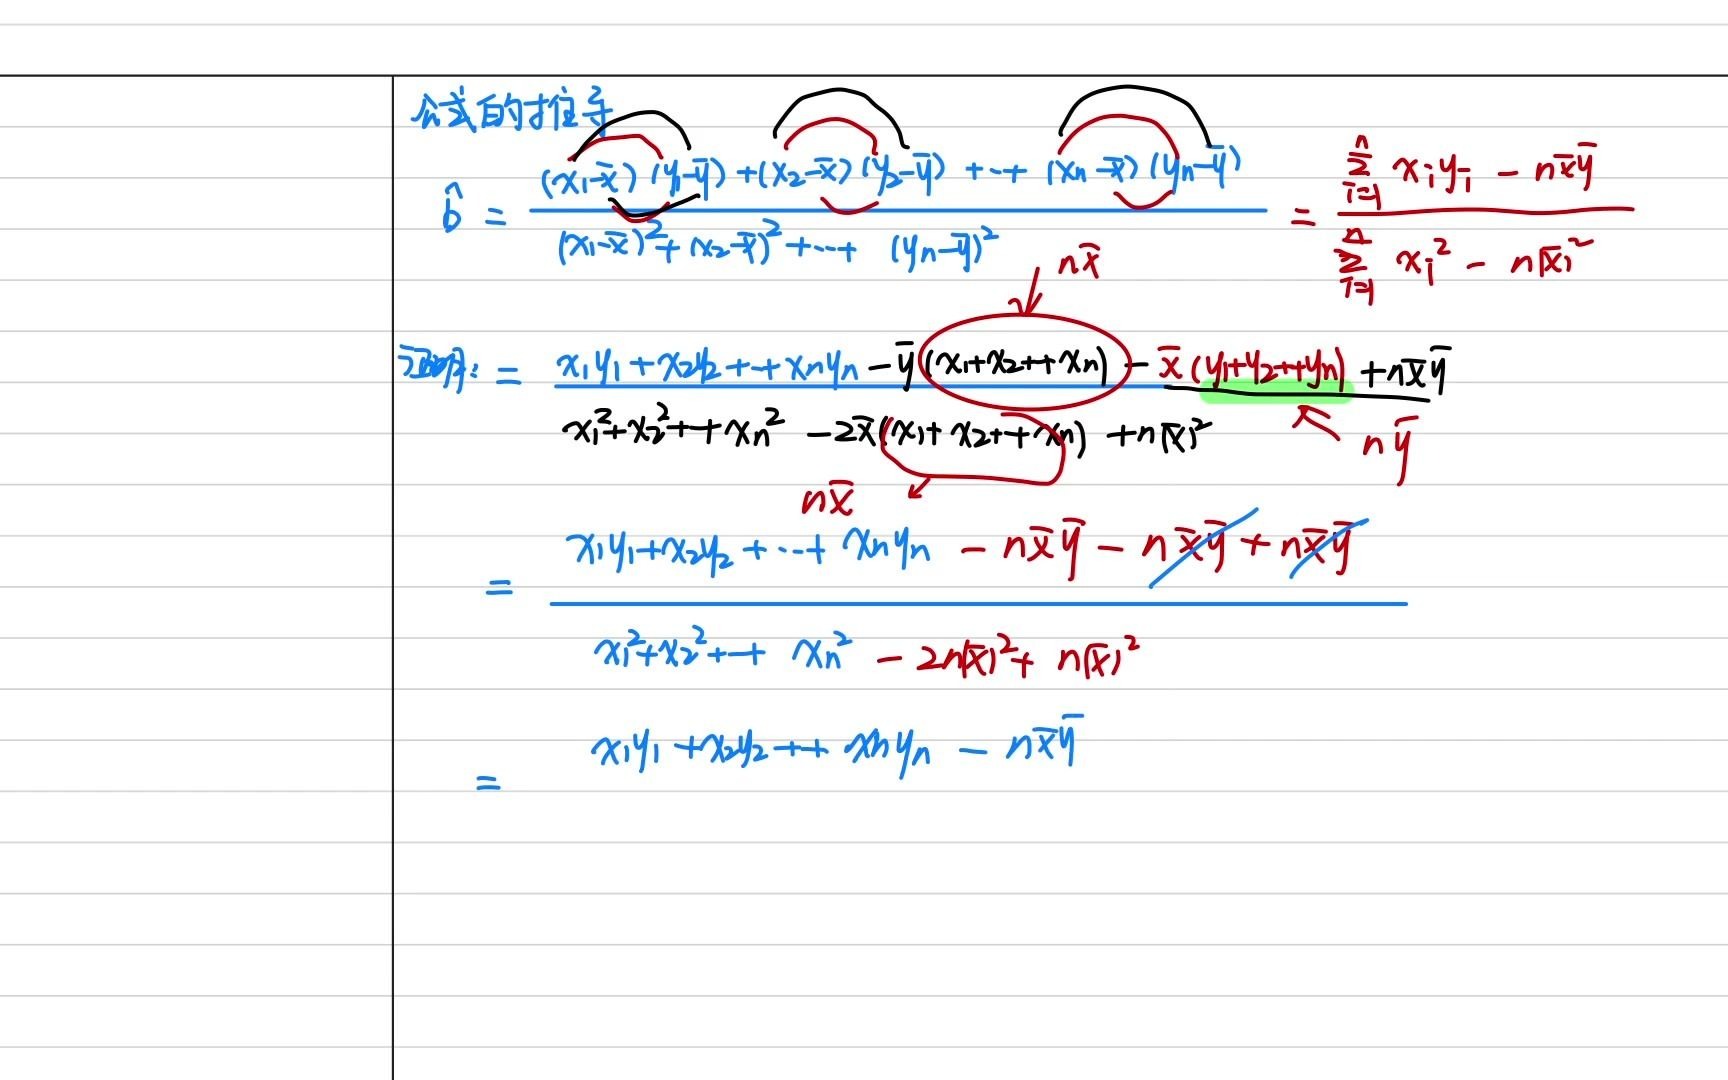 公式的推导
b̂ = (x₁-x̄)(y₁-ȳ)+(x₂-x̄)(y₂-ȳ)+…+(xn-x̄)(yn-ȳ) / (x₁-x̄)²+(x₂-x̄)²+…+(yn-ȳ)² = Σ(i=1→n) xᵢyᵢ - nx̄ȳ / Σ(i=1→n) xᵢ² - n(x̄)²
nx̄
证明: = x₁y₁+x₂y₂+…+xnyn - ȳ(x₁+x₂+…+xn) - x̄(y₁+y₂+…+yn)+nx̄ȳ / x₁²+x₂²+…+xn² - 2x̄(x₁+x₂+…+xn)+n(x̄)²
nȳ
nx̄
= x₁y₁+x₂y₂+…+xnyn - nx̄ȳ - nx̄ȳ + nx̄ȳ / x₁²+x₂²+…+xn² - 2n(x̄)²+n(x̄)²
= x₁y₁+x₂y₂+…+xnyn - nx̄ȳ